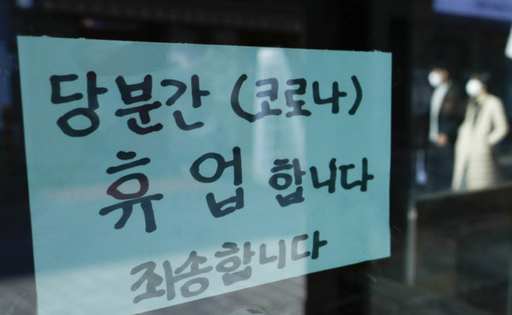 당분간 (코로나)
휴업 합니다
죄송합니다